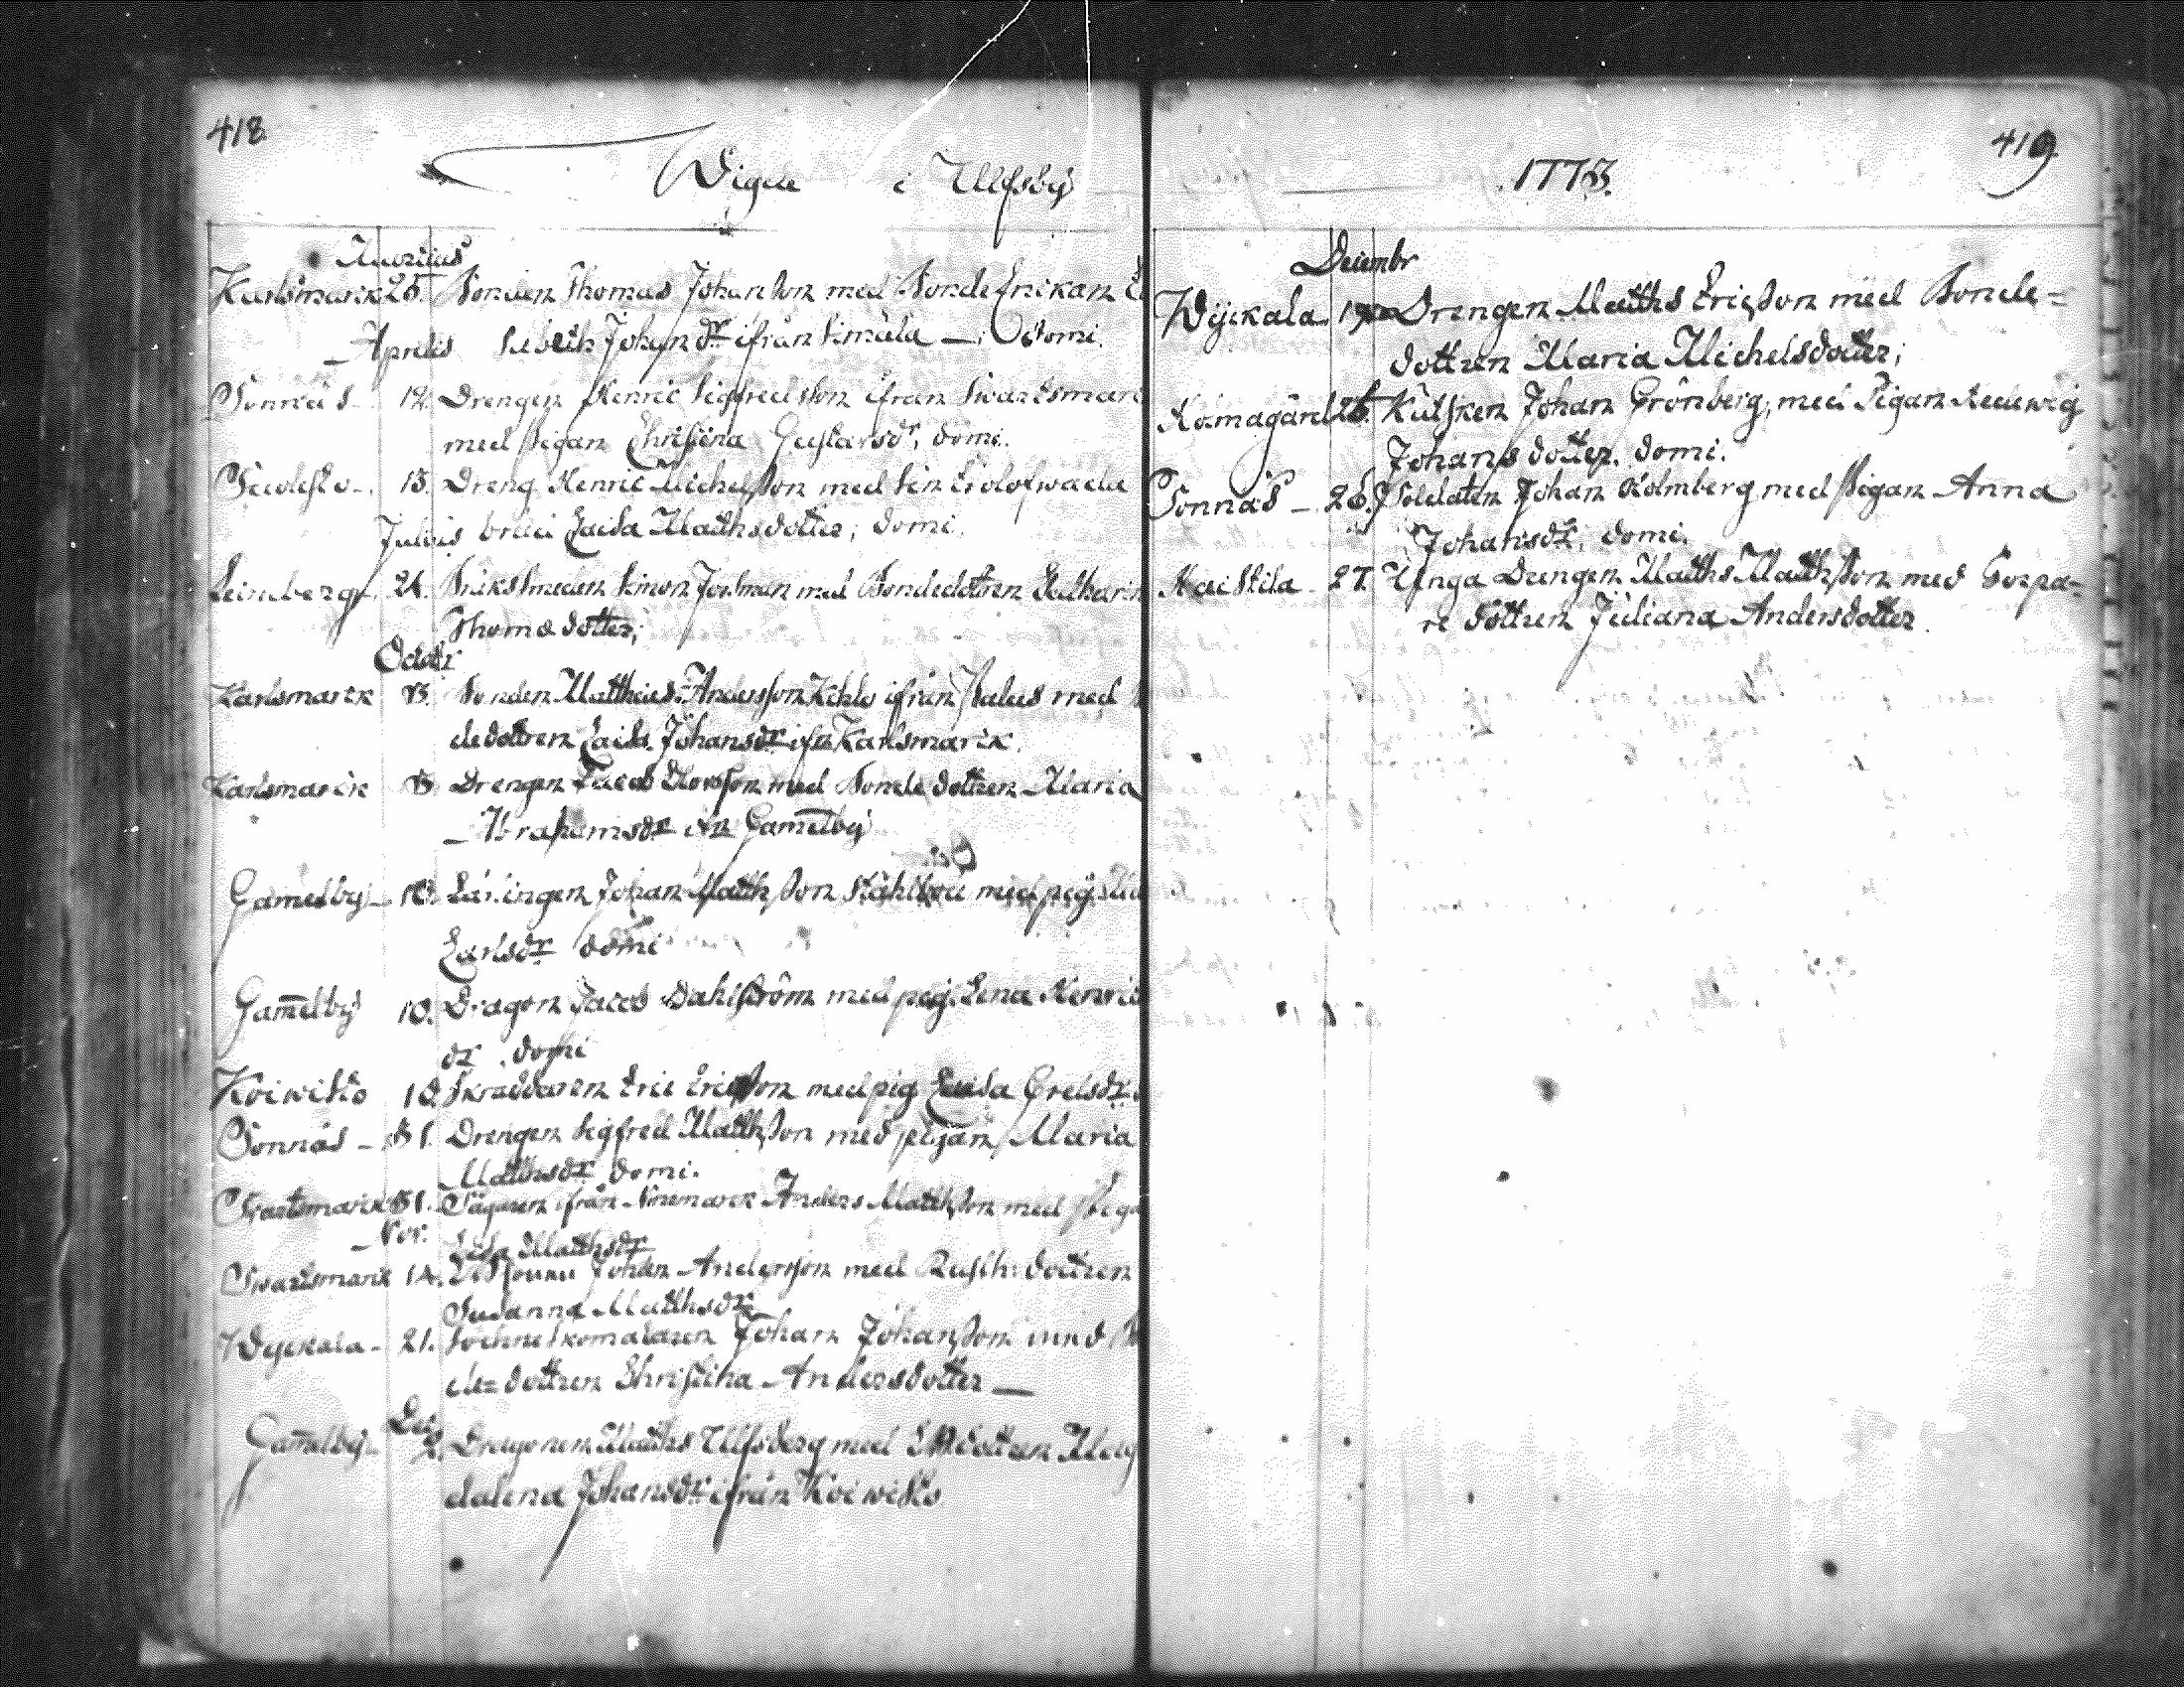 418
Wigde i Ulfsby
Martius
Karlsmark 25. Bonden Thomas Johansson med Bonde Enckan
Aprilis Johansdr ifrån domi.
Sonnäs 12. Drengen Henric Sigfredsson ifrån Swartsmark
med Pigan Christina Gustafsdr, domi.
13. Dreng Henric Michelsson med sin
Julius Caisa Matthsdotter; domi.
24. Simon med Bondedottren Catharin
Thomædotter;
Octobr
Karlsmarck 3. Bonden Matthias Andersson ifrån med
dedottren Caisa Johansdr ifr Karlsmarck.
Karlsmarck 3. Drengen Jacob med Bonde dottren Maria
Abrahamsdr ifr Gamelby
Gamelby 10. Johan Matthsson med pig.
Carlsdr domi
Gamelby 10. Dragon Jacob Dahlström med pig. Lena Henrics
dr. domi
Koiwisto 18. Skräddaren Eric Ericsson med pig Caisa Grelsdr.
Sonnäs 31. Drengen Sigfred Matthsson med pigan Maria
Matthsdr domi.
Swartsmarck 31. ifrån Norrmarck Anders Matthsson med Piga
Nov: Lisa Matthsdr
Swartsmarck 14. Johan Andersson med Rusth: dottren
Susanna Matthsdr
Wyckala 21. Sochneskomakaren Johan Johansson med
de=dottren Christina Andersdotter
Dec
Gamelby 2. Dragonen Matths Ulfsberg med dottren Mag
dalena Johansdr ifrån Koiwisto
419
1773.
Decembr
Wyckala. Drengen Matths Ericsson med Bonde=
dottren Maria Michelsdotter;
26. Kusken Johan Grönberg, med Pigan Hedewig
Johansdotter, domi.
Sonnäs 26. Soldaten Johan Holmberg med Pigan Anna
Johansdr, domi.
Haistila 27. Unga Drengen Matths Matthsson med Torpa=
re dottren Juliana Andersdotter.